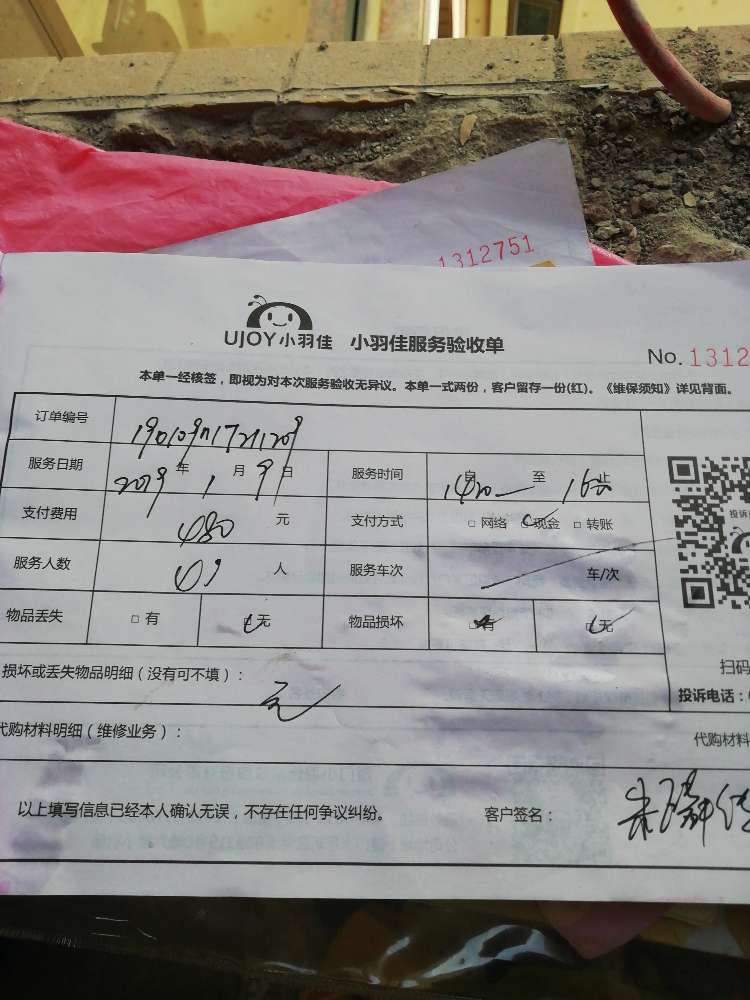 1312751
UJOY小羽佳 小羽佳服务验收单
No. 1312
本单一经核签，即视为对本次服务验收无异议。本单一式两份，客户留存一份(红)。《维保须知》详见背面。
订单编号
服务日期 2019 年 1 月 9 日 服务时间 自 1420 至 16 止
支付费用 480 元 支付方式 □ 网络 □ 现金 □ 转账
投诉
服务人数 人 服务车次 车/次
物品丢失 □ 有 □ 无 物品损坏 □ 有 □ 无
扫码
损坏或丢失物品明细（没有可不填）： 无
投诉电话：
代购材料明细（维修业务）： 代购材料
以上填写信息已经本人确认无误，不存在任何争议纠纷。 客户签名：